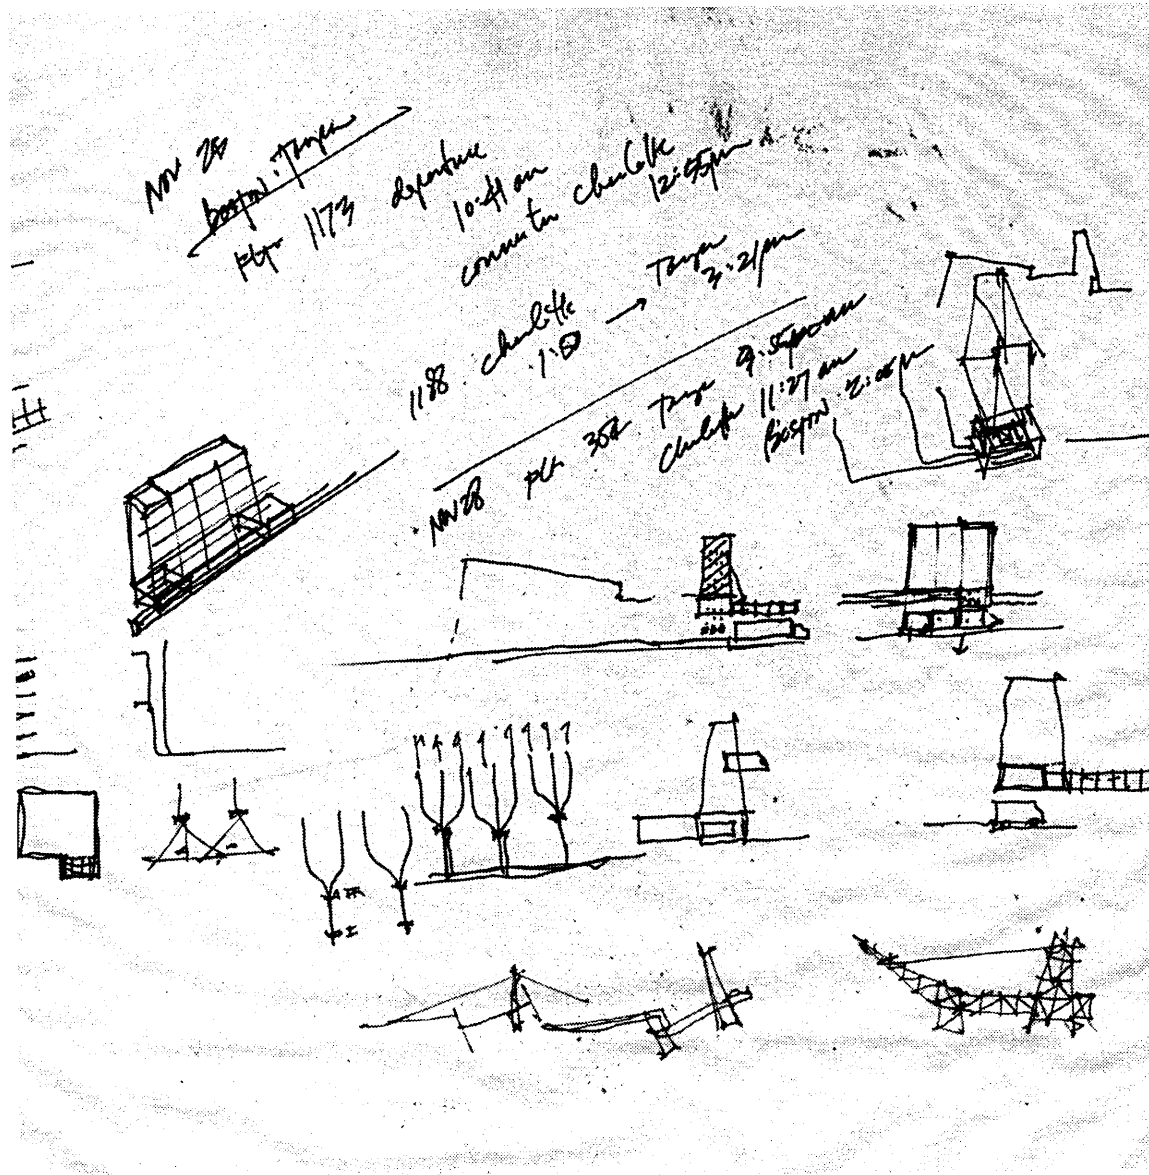 Nov 28
Boston · Tampa
Flt 1173 departure
10:41 am
connector charlotte
12:55pm
1188 charlotte → Tampa
3:21pm
Nov 28 flt Tampa
Charlotte 11:27 am
Boston